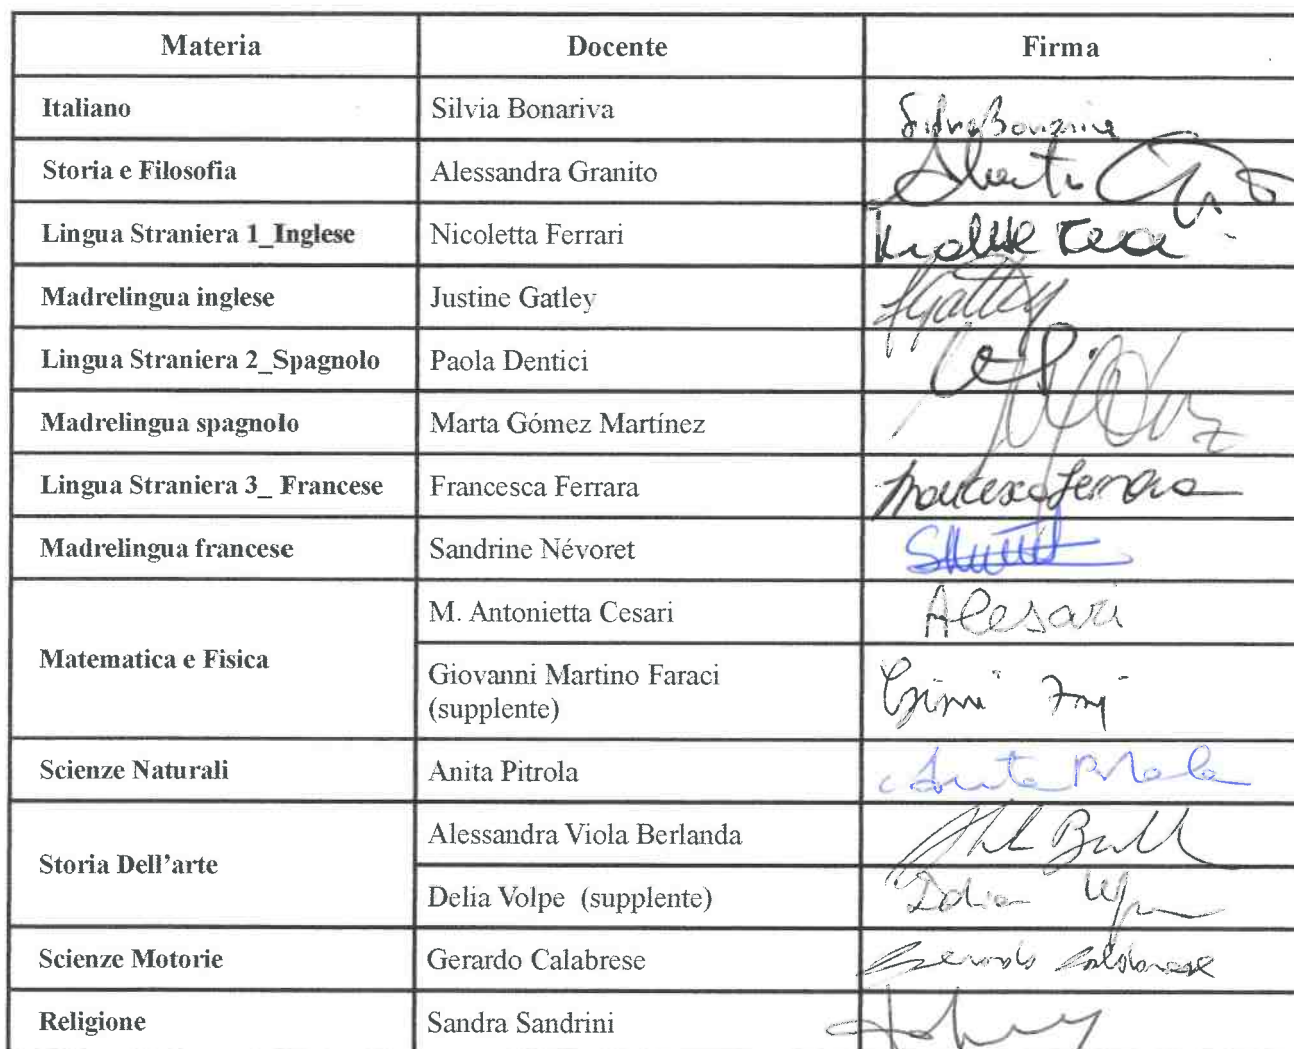 Materia Docente Firma
Italiano Silvia Bonariva
Storia e Filosofia Alessandra Granito
Lingua Straniera 1_Inglese Nicoletta Ferrari
Madrelingua inglese Justine Gatley JGatley
Lingua Straniera 2_Spagnolo Paola Dentici
Madrelingua spagnolo Marta Gómez Martínez
Lingua Straniera 3_ Francese Francesca Ferrara Francesca Ferrara
Madrelingua francese Sandrine Névoret
M. Antonietta Cesari ACesari
Matematica e Fisica
Giovanni Martino Faraci
(supplente)
Scienze Naturali Anita Pitrola Anita Pitrola
Alessandra Viola Berlanda
Storia Dell'arte
Delia Volpe (supplente)
Scienze Motorie Gerardo Calabrese Gerardo Calabrese
Religione Sandra Sandrini